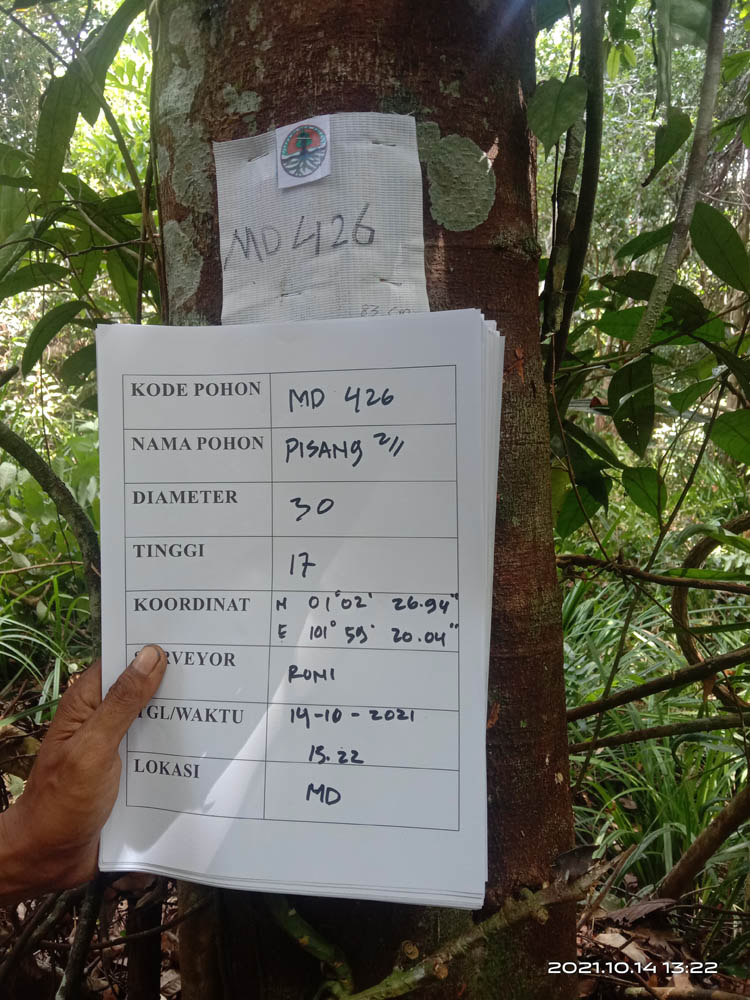 MD 426
83 cm
KODE POHON MD 426
NAMA POHON PISANG 2//
DIAMETER 30
TINGGI 17
KOORDINAT N 01°02' 26.94"
E 101° 59' 20.04"
SURVEYOR RONI
TGL/WAKTU 14-10-2021
15.22
LOKASI MD
2021.10.14 13:22